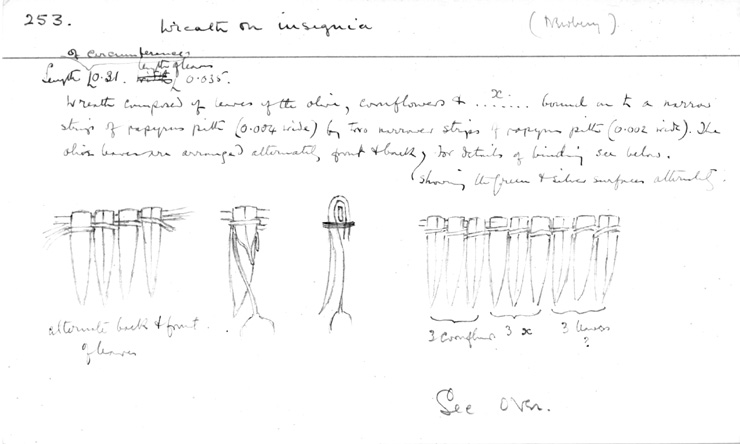 253. Wreath on insignia (Newberry)
of circumference
length of leaves
Length 0.21. 0.035.
Wreath composed of leaves of the olive, cornflowers & ..x.... bound on to a narrow
strip of papyrus pith (0.004 wide) by two narrower strips of papyrus pith (0.002 wide). The
olive leaves are arranged alternately, front & back, for details of binding see below.
showing the green & silver surfaces alternately.
alternate back & front
of leaves
3 cornflwr 3 x 3 leaves
?
See over.